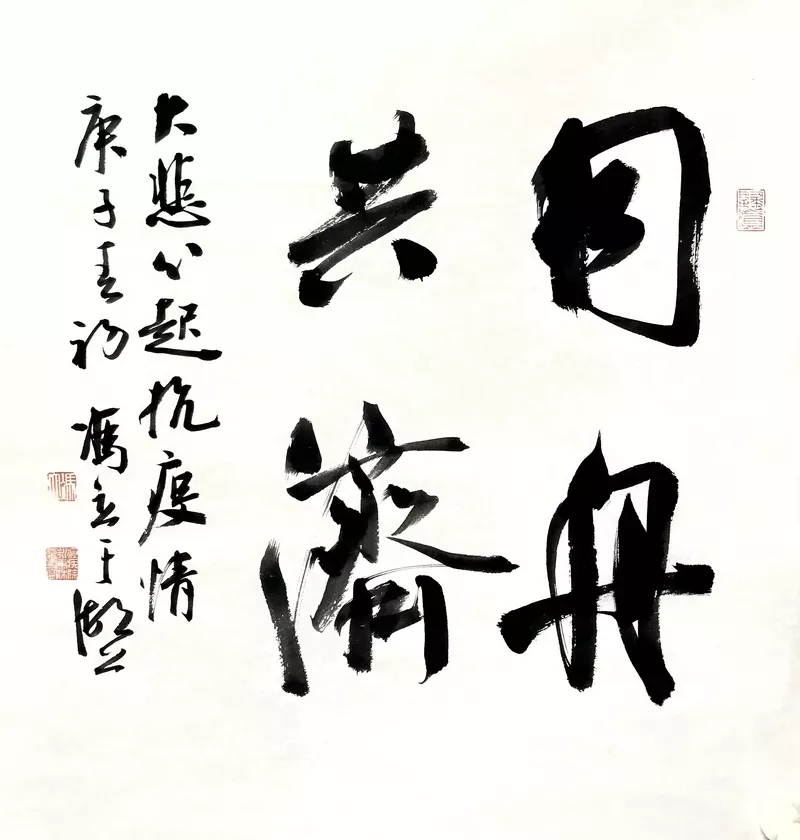 同舟
共濟
大悲心起抗疫情
庚子春初 馮立于